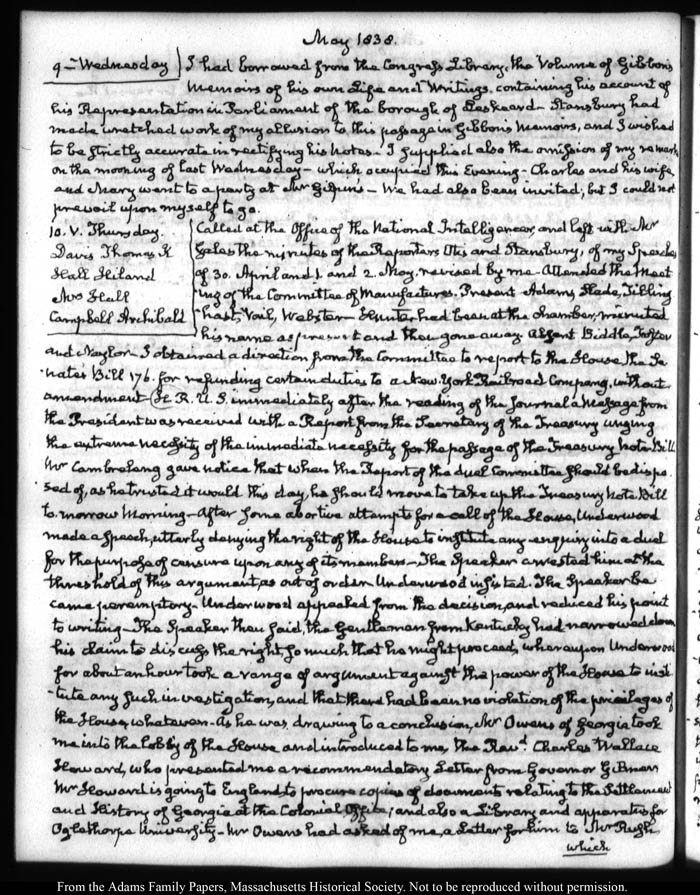 May 1838.
9. Wednesday I had borrowed from the Congress Library, the Volume of Gibbon's
Memoirs of his own Life and Writings, containing his account of
his Representation in Parliament of the borough of Leskeard - Stansbury had
made wretched work of my allusion to this passage in Gibbon's Memoirs, and I wished
to be strictly accurate in rectifying his notes. I supplied also the omission of my remarks
on the morning of last Wednesday - which occupied this Evening - Charles and his wife
and Mary went to a party at Mr Gilpin's - We had also been invited; but I could not
prevail upon myself to go.
10. V. Thursday. Called at the Office of the National Intelligencer and left with Mr
Davis Thomas K Gales the minutes of the Reporters Otis and Stansbury, of my Speeches
Hall Hiland of 30. April and 1 and 2. May. revised by me - Attended the Meet
Mrs Hall ing of the Committee of Manufactures. Present Adams, Slade, Tilling
Campbell Archibald hast, Vail, Webster - Hunter had been at the chamber, minuted
his name as present and then gone away. Absent Biddle, Foster
and Naylor - I obtained a direction from the Committee to report to the House the Se
nate's Bill 176. for refunding certain duties to a New York Railroad Company, without
amendment - H. R. U. S. immediately after the reading of the Journal a Message from
the President was received with a Report from the Secretary of the Treasury urging
the extreme necessity of the immediate necessity for the passage of the Treasury Note Bill
Mr Cambreleng gave notice that when the Report of the duel Committee should be dispo
sed of, as he trusted it would this day, he should move to take up the Treasury Note Bill
to-morrow Morning - After some abortive attempts for a call of the House, Underwood
made a speech, utterly denying the right of the House to institute any enquiry into a duel
for the purpose of censure upon any of its members - The Speaker arrested him at the
threshold of this argument, as out of order. Underwood insisted. The Speaker be
came peremptory. Underwood appealed from the decision, and reduced his point
to writing - The Speaker then said, the Gentleman from Kentucky had narrowed down
his claim to discuss the right, so much that he might proceed, whereupon Underwood
for about an hour took a range of argument against the power of the House to insti
tute any such investigation, and that there had been no violation of the privileges of
the House, whatever - As he was drawing to a conclusion, Mr Owens of Georgia took
me into the lobby of the House and introduced to me, the Revd. Charles Wallace
Howard, who presented me a recommendatory Letter from Governor Gilmer
Mr Howard is going to England, to procure copies of documents relating to the Settlement
and History of Georgia at the Colonial Office; and also a Library and apparatus for
Oglethorpe University - Mr Owens had asked of me, a Letter for him to Mr Rush
which
From the Adams Family Papers, Massachusetts Historical Society. Not to be reproduced without permission.